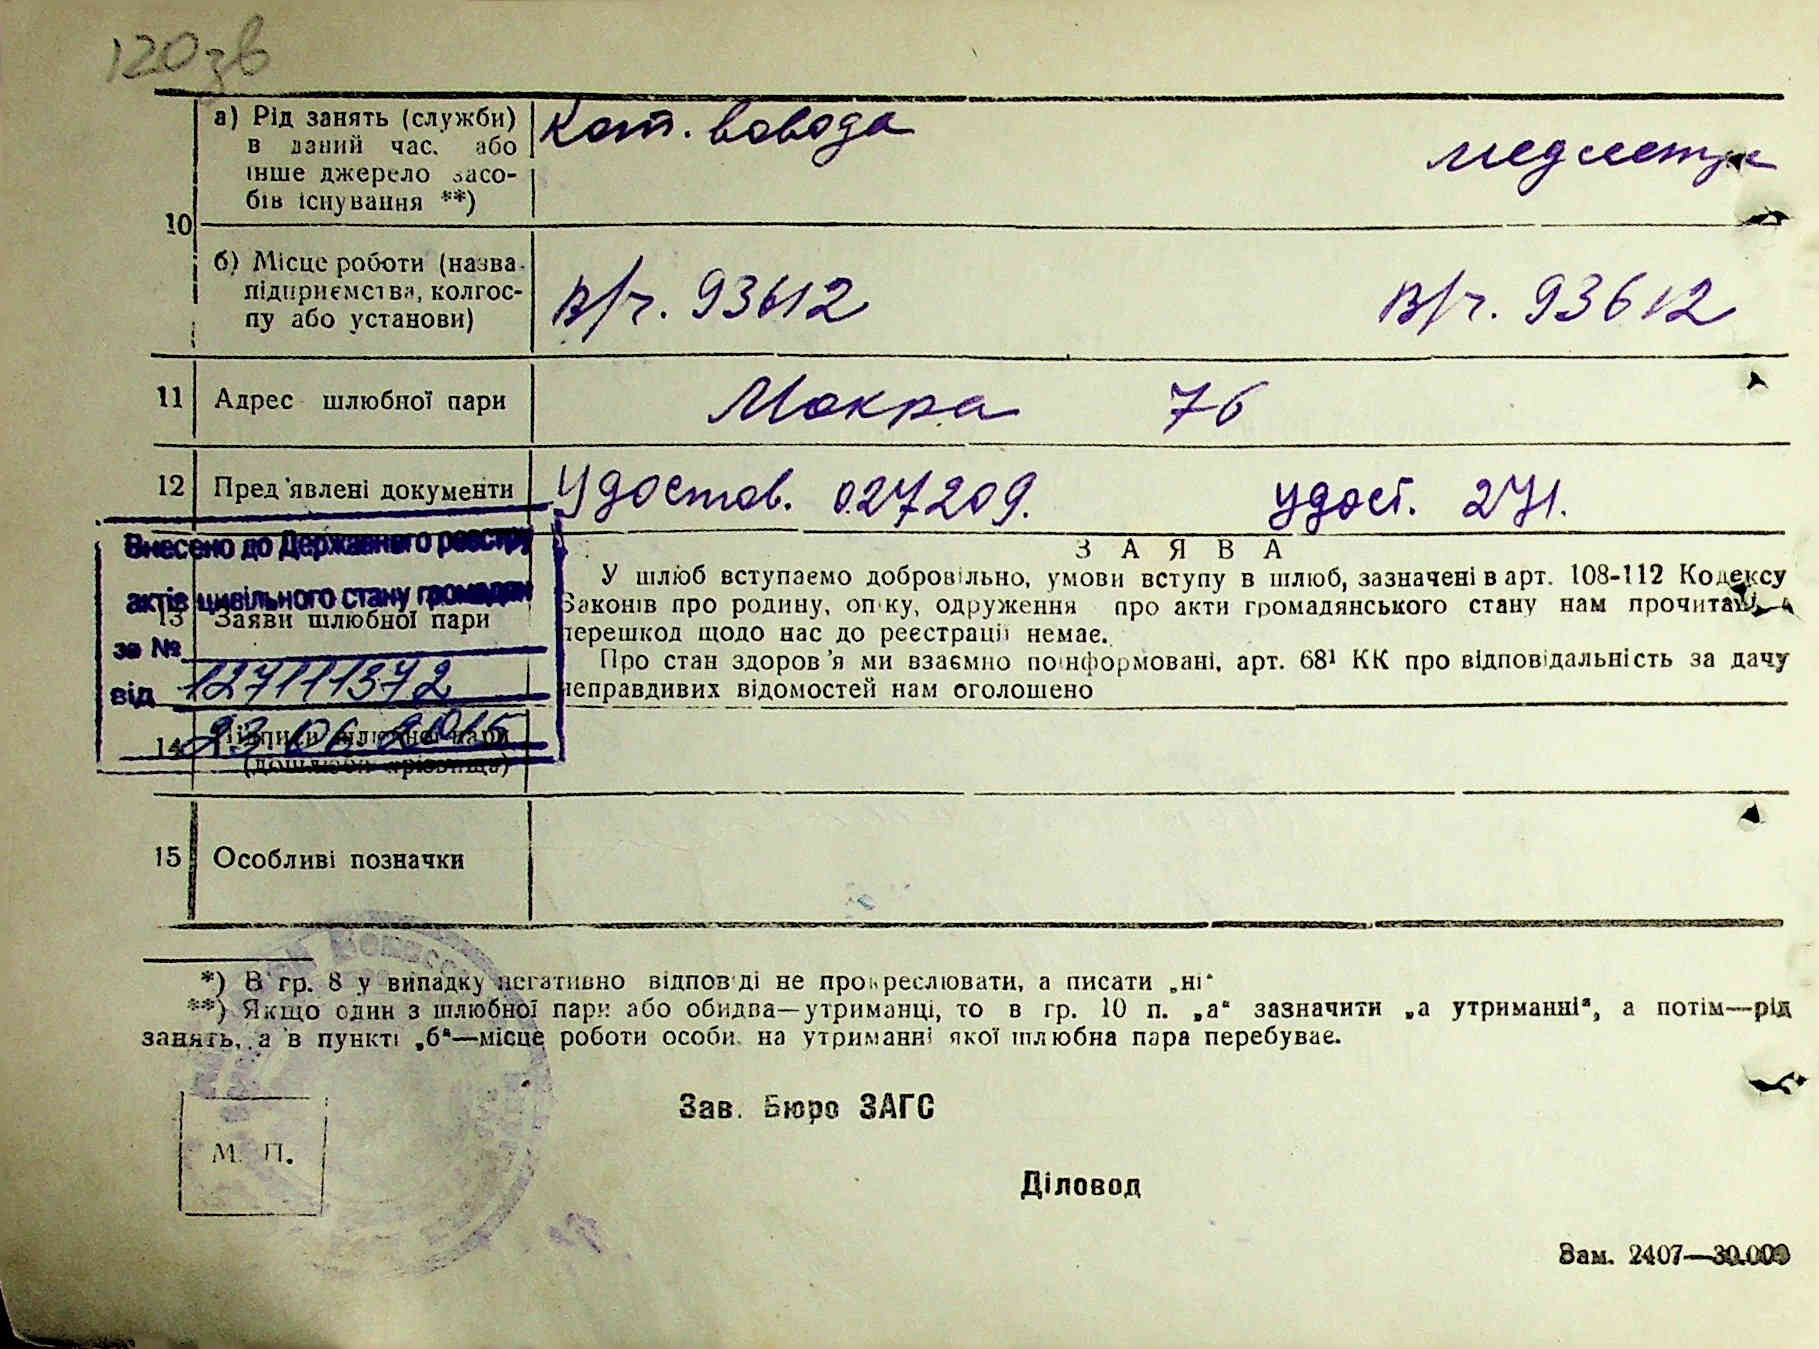 120зв
а) Рід занять (служби)
в даний час, або
інше джерело засо-
бів існування **)
Ком. взвода
медсестра
10
б) Місце роботи (назва
підприємства, колгос-
пу або установи)
В/ч. 93612
В/ч. 93612
11 Адрес шлюбної пари
Мокра 76
12 Пред'явлені документи
Удостов. 027209.
удост. 271.
Внесено до Державного реєстру
актів цивільного стану громадян
за №
127111372
від
23.06.2015
13 Заяви шлюбної пари
ЗАЯВА
У шлюб вступаємо добровільно, умови вступу в шлюб, зазначені в арт. 108-112 Кодексу
Законів про родину, опіку, одруження про акти громадянського стану нам прочитані,
перешкод щодо нас до реєстрації немає.
Про стан здоров'я ми взаємно поінформовані, арт. 68¹ КК про відповідальність за дачу
неправдивих відомостей нам оголошено
14 Підписи шлюбної пари
(дошлюбні прізвища)
15 Особливі позначки
*) В гр. 8 у випадку негативно відповіді не прокреслювати, а писати „ні“
**) Якщо один з шлюбної пари або обидва—утриманці, то в гр. 10 п. „а“ зазначити „а утриманні“, а потім—рід
занять, а в пункті „б“—місце роботи особи, на утриманні якої шлюбна пара перебуває.
Зав. Бюро ЗАГС
М. П.
Діловод
Зам. 2407—30.000